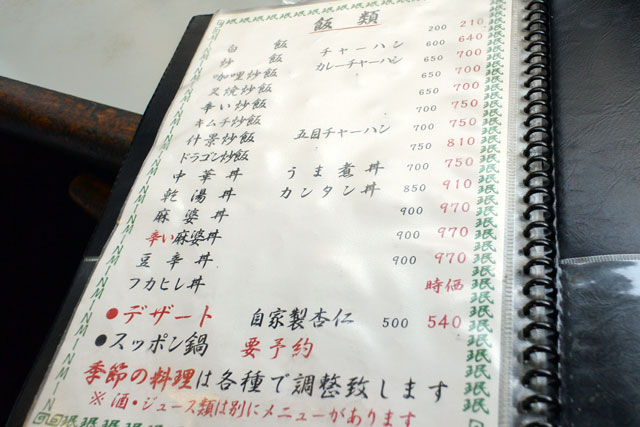 飯類
白飯 200 210
炒飯 チャーハン 600 640
咖哩炒飯 カレーチャーハン 650 700
叉焼炒飯 650 700
辛い炒飯 650 700
キムチ炒飯 700 750
什景炒飯 五目チャーハン 700 750
ドラゴン炒飯 750 810
中華丼 うま煮丼 700 750
乾湯丼 カンタン丼 850 910
麻婆丼 900 970
辛い麻婆丼 900 970
豆辛丼 900 970
フカヒレ丼 時価
●デザート 自家製杏仁 500 540
●スッポン鍋 要予約
季節の料理は各種で調整致します
※酒・ジュース類は別にメニューがあります